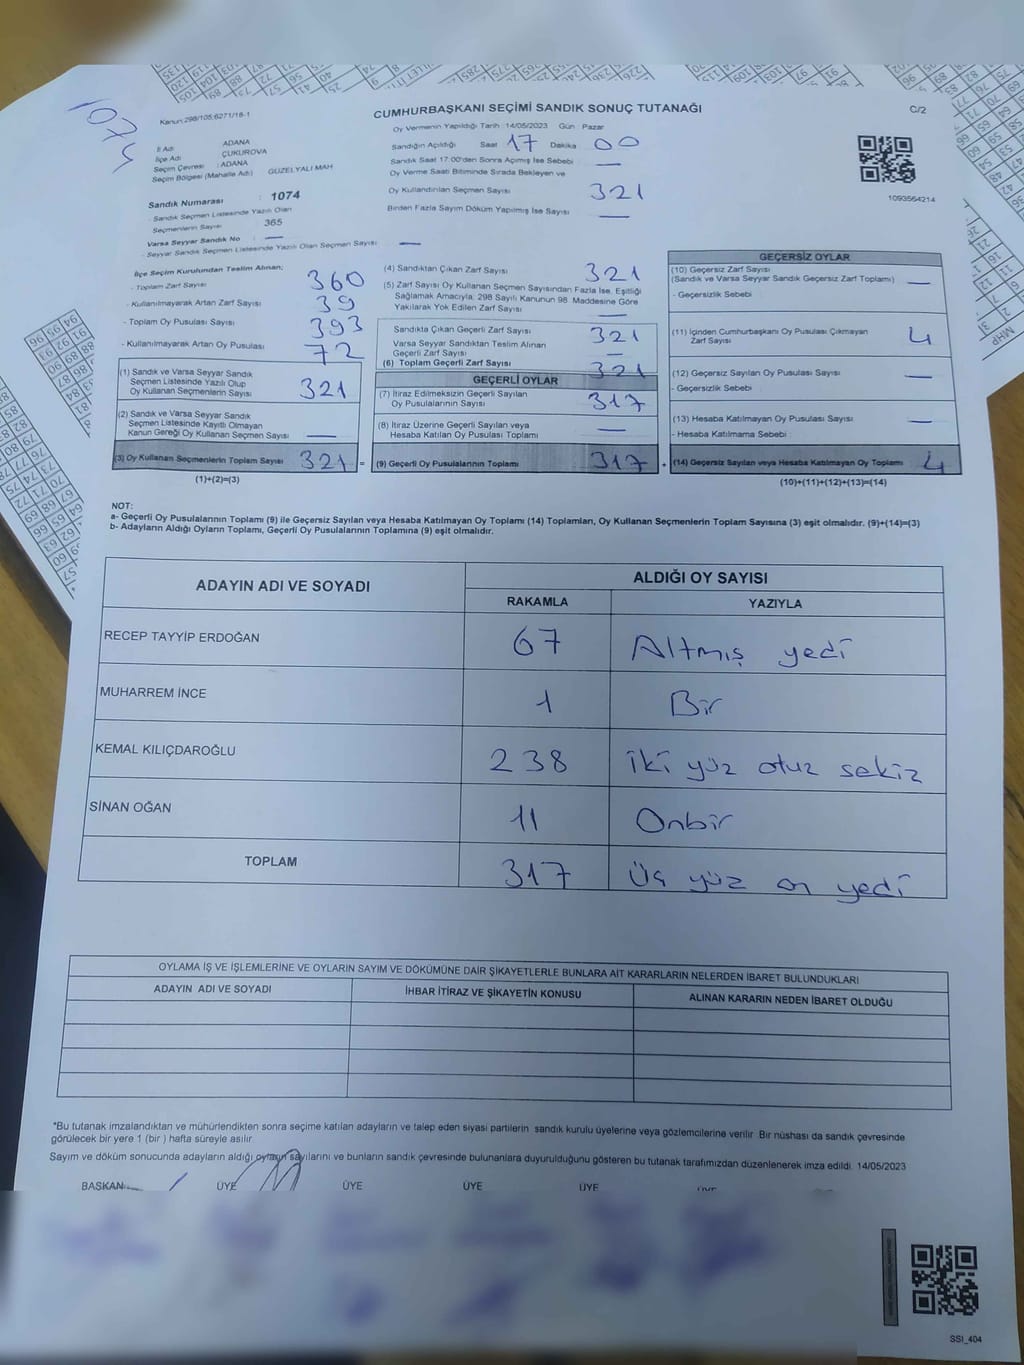 1074
Kanun:298/105;6271/18-1
CUMHURBAŞKANI SEÇİMİ SANDIK SONUÇ TUTANAĞI
C/2
Oy Vermenin Yapıldığı Tarih :14/05/2023 Gün :Pazar
İl Adı : ADANA
İlçe Adı : ÇUKUROVA
Seçim Çevresi : ADANA
Seçim Bölgesi (Mahalle Adı) : GÜZELYALI MAH
Sandık Numarası : 1074
- Sandık Seçmen Listesinde Yazılı Olan
Seçmenlerin Sayısı : 365
Varsa Seyyar Sandık No : —
- Seyyar Sandık Seçmen Listesinde Yazılı Olan Seçmen Sayısı : —
Sandığın Açıldığı Saat 17 Dakika 00
Sandık Saat 17:00'den Sonra Açılmış İse Sebebi —
Oy Verme Saati Bitiminde Sırada Bekleyen ve
Oy Kullandırılan Seçmen Sayısı 321
Birden Fazla Sayım Döküm Yapılmış İse Sayısı —
1093564214
İlçe Seçim Kurulundan Teslim Alınan;
- Toplam Zarf Sayısı 360
- Kullanılmayarak Artan Zarf Sayısı 39
- Toplam Oy Pusulası Sayısı 393
- Kullanılmayarak Artan Oy Pusulası 72
(1) Sandık ve Varsa Seyyar Sandık
Seçmen Listesinde Yazılı Olup
Oy Kullanan Seçmenlerin Sayısı 321
(2) Sandık ve Varsa Seyyar Sandık
Seçmen Listesinde Kayıtlı Olmayan
Kanun Gereği Oy Kullanan Seçmen Sayısı —
(3) Oy Kullanan Seçmenlerin Toplam Sayısı 321 =
(1)+(2)=(3)
(4) Sandıktan Çıkan Zarf Sayısı 321
(5) Zarf Sayısı Oy Kullanan Seçmen Sayısından Fazla İse, Eşitliği
Sağlamak Amacıyla, 298 Sayılı Kanunun 98. Maddesine Göre
Yakılarak Yok Edilen Zarf Sayısı —
Sandıkta Çıkan Geçerli Zarf Sayısı 321
Varsa Seyyar Sandıktan Teslim Alınan
Geçerli Zarf Sayısı —
(6) Toplam Geçerli Zarf Sayısı 321
GEÇERLİ OYLAR
(7) İtiraz Edilmeksizin Geçerli Sayılan
Oy Pusulalarının Sayısı 317
(8) İtiraz Üzerine Geçerli Sayılan veya
Hesaba Katılan Oy Pusulası Toplamı —
(9) Geçerli Oy Pusulalarının Toplamı 317 +
GEÇERSİZ OYLAR
(10) Geçersiz Zarf Sayısı
(Sandık ve Varsa Seyyar Sandık Geçersiz Zarf Toplamı) —
- Geçersizlik Sebebi
(11) İçinden Cumhurbaşkanı Oy Pusulası Çıkmayan
Zarf Sayısı 4
(12) Geçersiz Sayılan Oy Pusulası Sayısı —
- Geçersizlik Sebebi
(13) Hesaba Katılmayan Oy Pusulası Sayısı —
- Hesaba Katılmama Sebebi
(14) Geçersiz Sayılan veya Hesaba Katılmayan Oy Toplamı 4
(10)+(11)+(12)+(13)=(14)
NOT:
a- Geçerli Oy Pusulalarının Toplamı (9) ile Geçersiz Sayılan veya Hesaba Katılmayan Oy Toplamı (14) Toplamları, Oy Kullanan Seçmenlerin Toplam Sayısına (3) eşit olmalıdır. (9)+(14)=(3)
b- Adayların Aldığı Oyların Toplamı, Geçerli Oy Pusulalarının Toplamına (9) eşit olmalıdır.
ADAYIN ADI VE SOYADI
ALDIĞI OY SAYISI
RAKAMLA YAZIYLA
RECEP TAYYİP ERDOĞAN 67 Altmış yedi
MUHARREM İNCE 1 Bir
KEMAL KILIÇDAROĞLU 238 iki yüz otuz sekiz
SİNAN OĞAN 11 Onbir
TOPLAM 317 Üç yüz on yedi
OYLAMA İŞ VE İŞLEMLERİNE VE OYLARIN SAYIM VE DÖKÜMÜNE DAİR ŞİKAYETLERLE BUNLARA AİT KARARLARIN NELERDEN İBARET BULUNDUKLARI
ADAYIN ADI VE SOYADI İHBAR İTİRAZ VE ŞİKAYETİN KONUSU ALINAN KARARIN NEDEN İBARET OLDUĞU
*Bu tutanak imzalandıktan ve mühürlendikten sonra seçime katılan adayların ve talep eden siyasi partilerin sandık kurulu üyelerine veya gözlemcilerine verilir. Bir nüshası da sandık çevresinde
görülecek bir yere 1 (bir ) hafta süreyle asılır.
Sayım ve döküm sonucunda adayların aldığı oyların sayılarını ve bunların sandık çevresinde bulunanlara duyurulduğunu gösteren bu tutanak tarafımızdan düzenlenerek imza edildi. 14/05/2023
BAŞKAN ÜYE ÜYE ÜYE ÜYE ÜYE
SSI_404
MHP